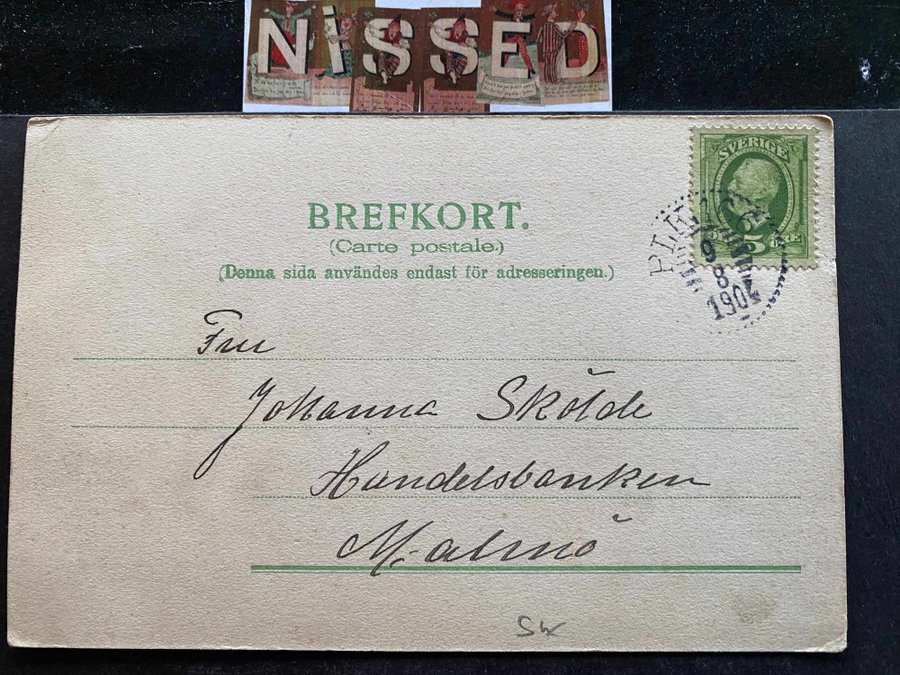 NISSED
BREFKORT.
(Carte postale.)
(Denna sida användes endast för adresseringen.)
SVERIGE
5 ÖRE
9
8
1904
Fru
Johanna Skölde
Handelsbanken
Malmö